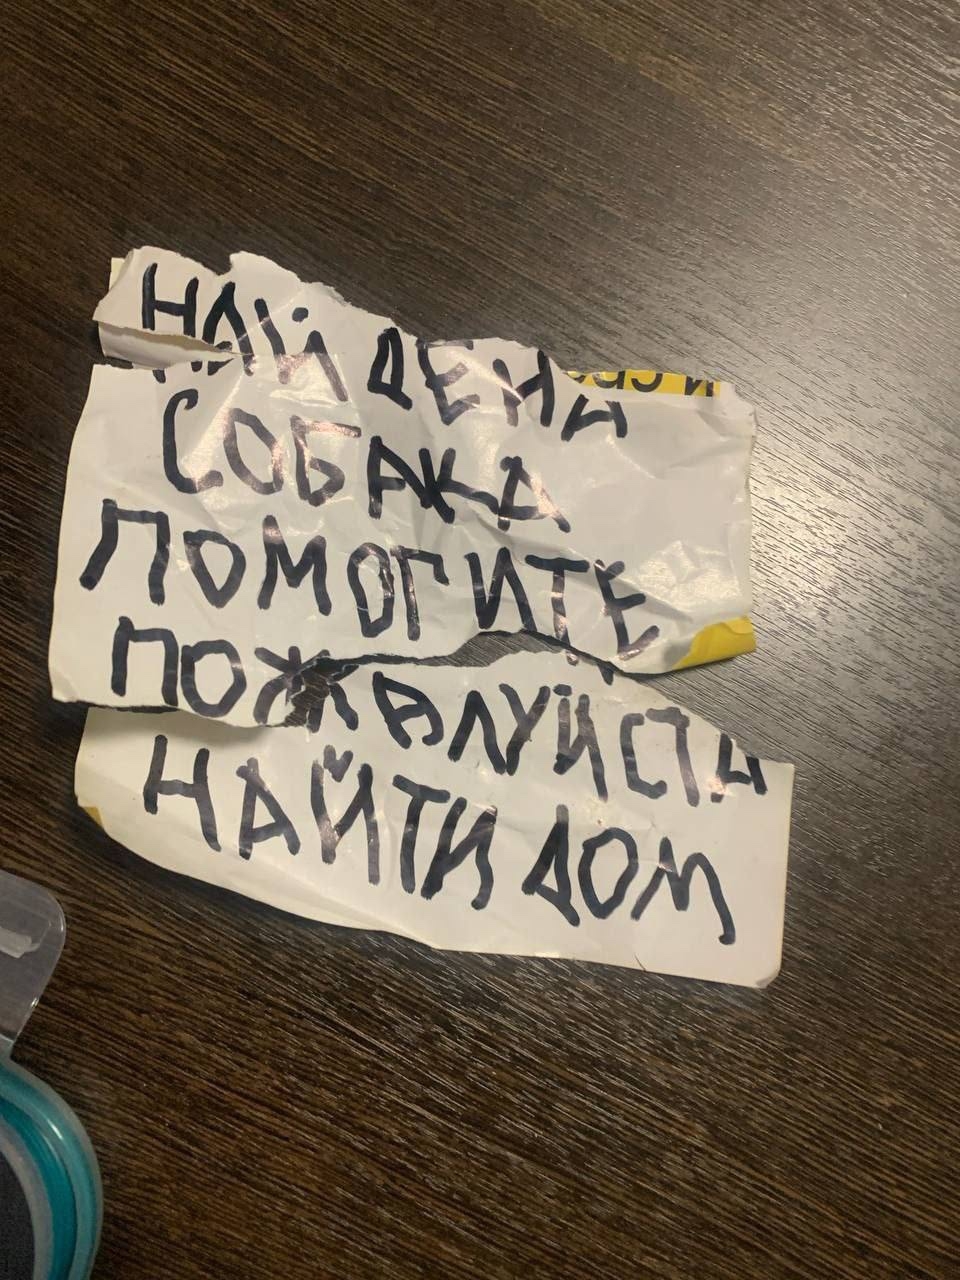 НАЙДЕНА
СОБАКА
ПОМОГИТЕ
ПОЖАЛУЙСТА
НАЙТИ ДОМ